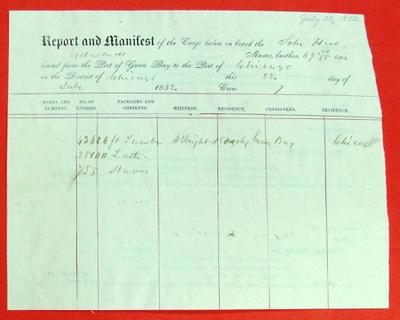 July 28, 1852
Report and Manifest of the Cargo laden on board the Schr
Master, burthen 69 tons
bound from the Port of Green Bay to the Port of Chicago
in the District of Chicago this 28 day of
July 1852. Crew 7
MARKS AND NUMBERS. NO. OF ENTRIES. PACKAGES AND CONTENTS SHIPPERS. RESIDENCE. CONSIGNEES. RESIDENCE.
ft Lumber Green Bay Chicago
Lath
755 Staves